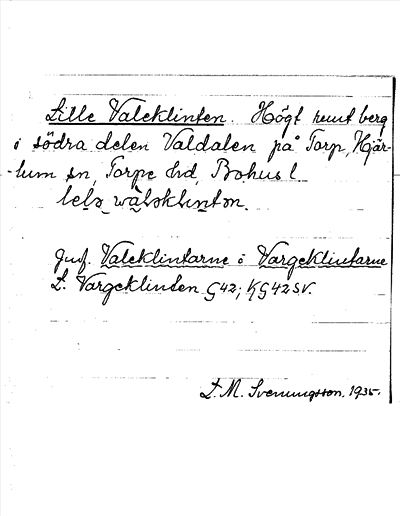 Lille Valeklinten. Högt runt berg
i södra delen Valdalen på Torp, Hjär-
tum sn, Torpe hd, Bohusl
lelə wàləklintən.
Jmf. Valeklintarne o Vargeklintarne
L. Vargeklinten G42; KG42SV.
L. M. Svenungsson. 1935.